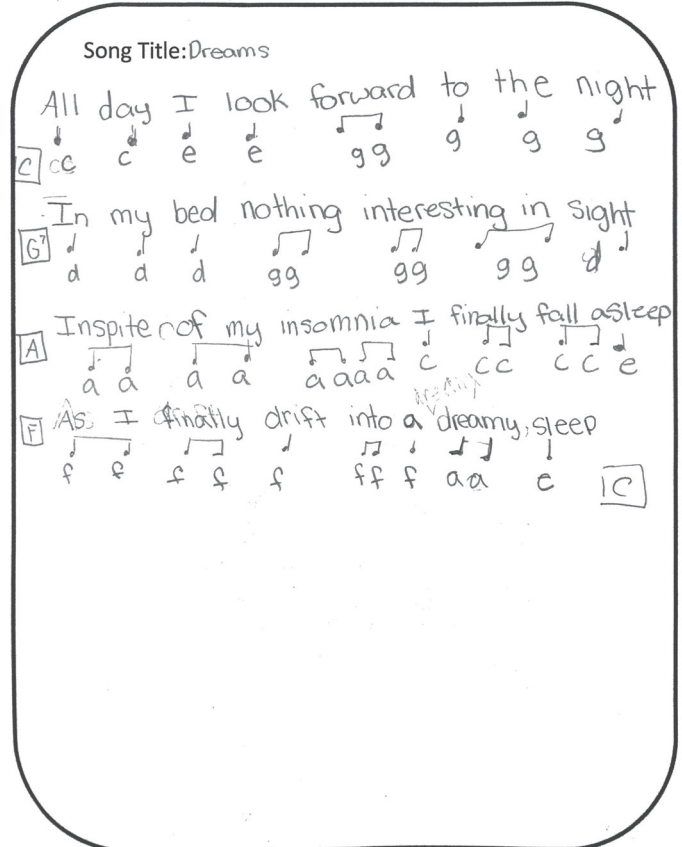 Song Title: Dreams
All day I look forward to the night
C cc c e e gg g g g
In my bed nothing interesting in sight
G7 d d d gg gg gg d
Inspite of my insomnia I finally fall asleep
A a a a a a aaa c cc cc e
As I finally drift into a dreamy sleep
F f f f f f ff f aa c C